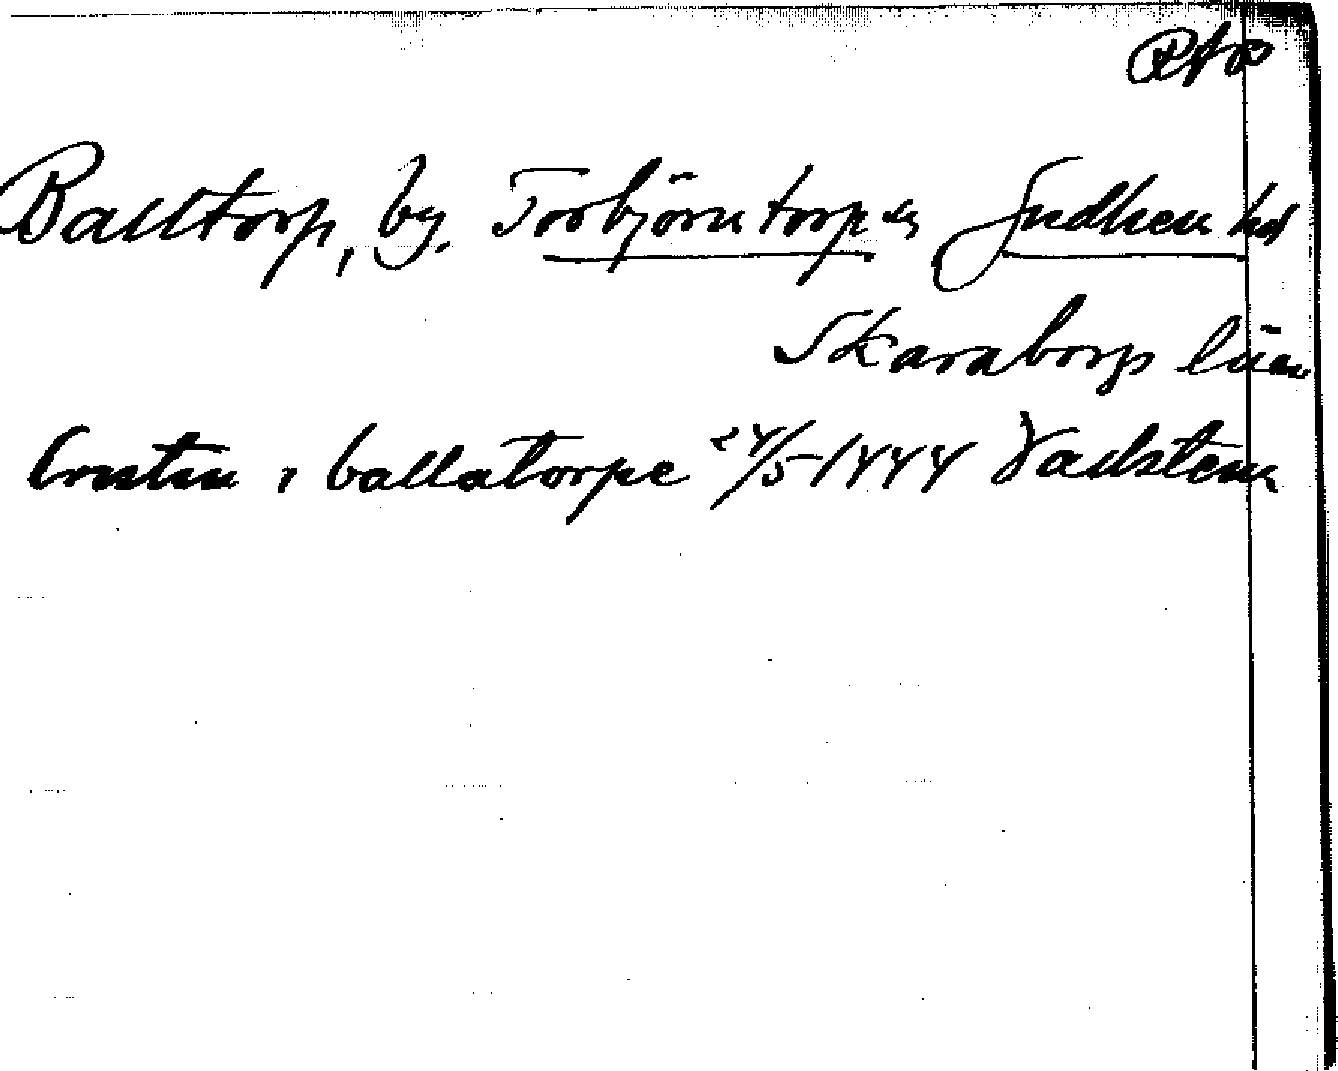 Balltorp, by. Torbjörntorps sn Gudhem hd
Skaraborgs län
Cristin i ballatorpe 24/5 1444 Vadstena